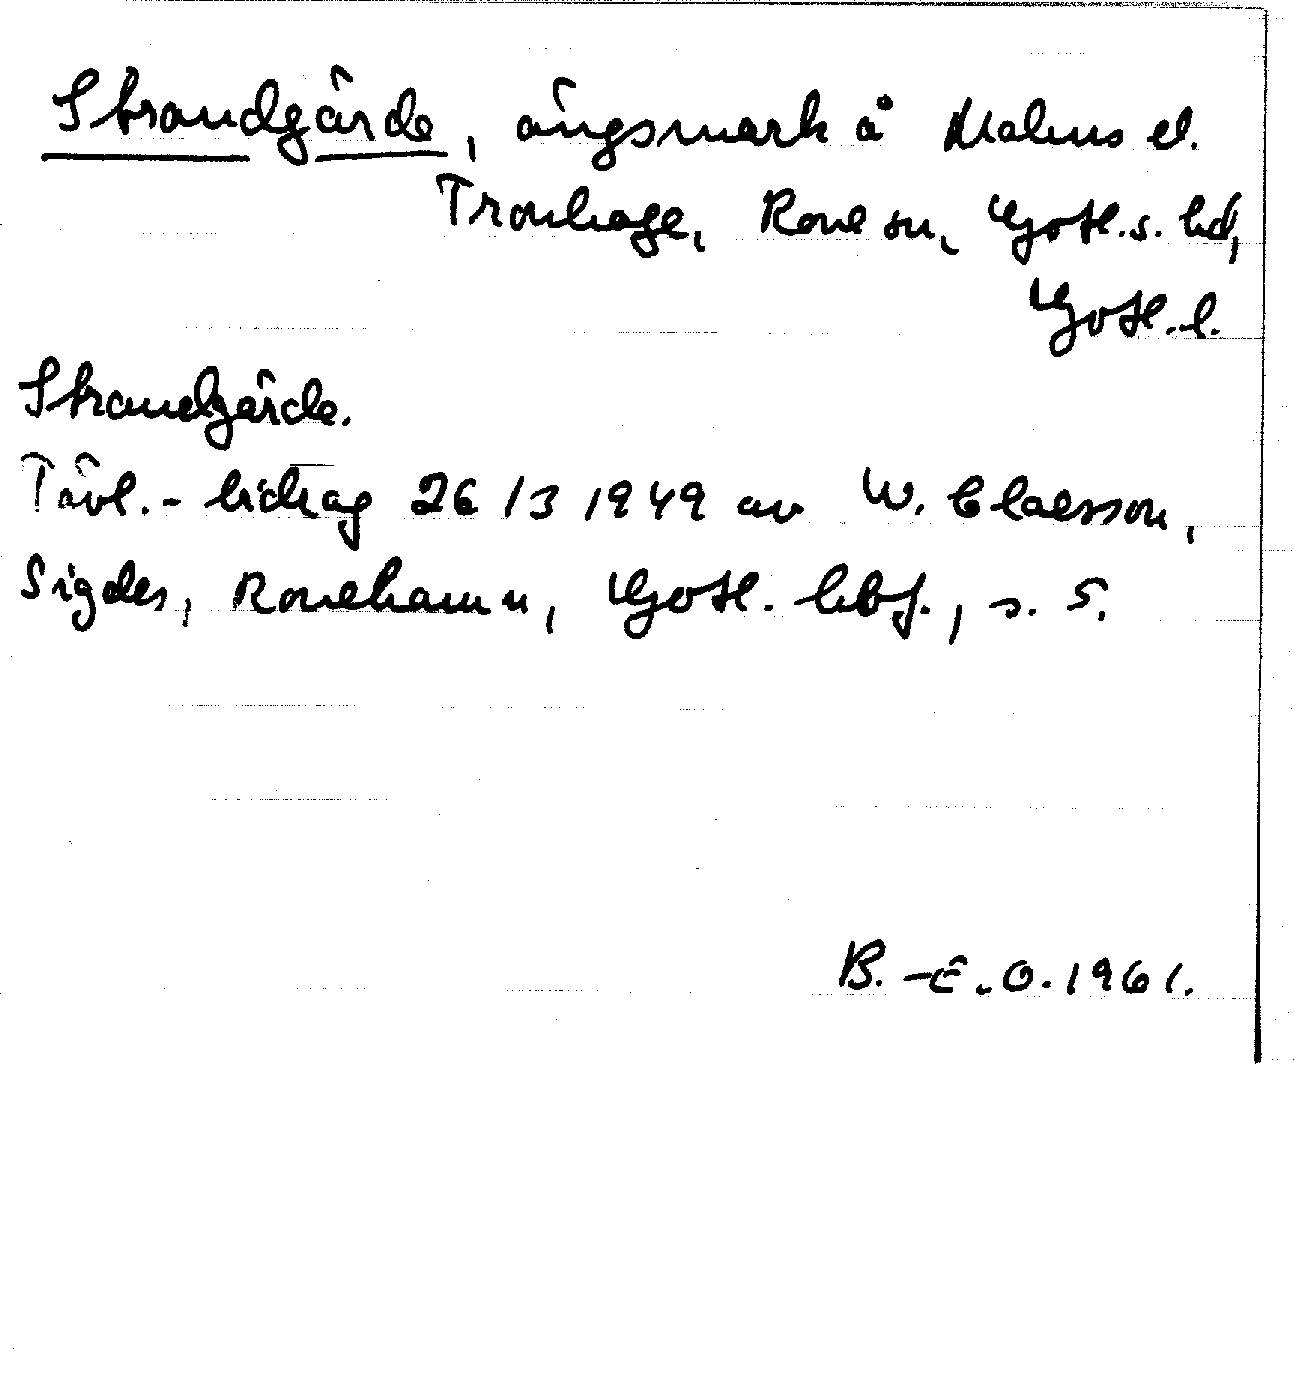 Strandgärde, ängsmark å Malms el.
Tronhage, Rone sn, Gotl.s. hd,
Gotl.l.
Strandgärde.
Tävl.-bidrag 26/3 1949 av W. Claesson,
Sigdes, Ronehamn, Gotl. hbf., s. 5.
B.-E.O. 1961.